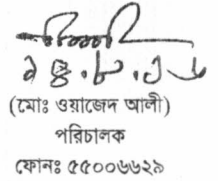 (মোঃ ওয়াজেদ আলী)
পরিচালক
ফোনঃ ৫৫০০৬৬২৯